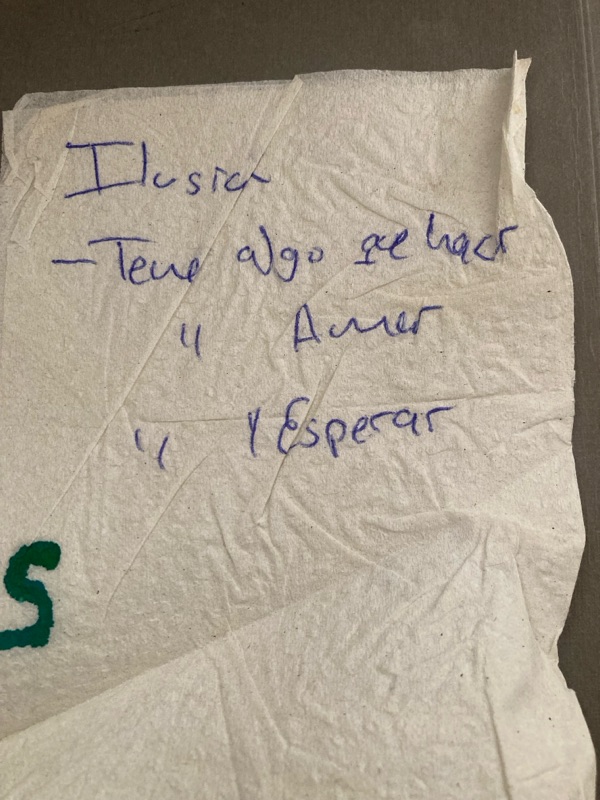 Ilusion
- Tene algo que hacer
" Amar
" y Esperar
S